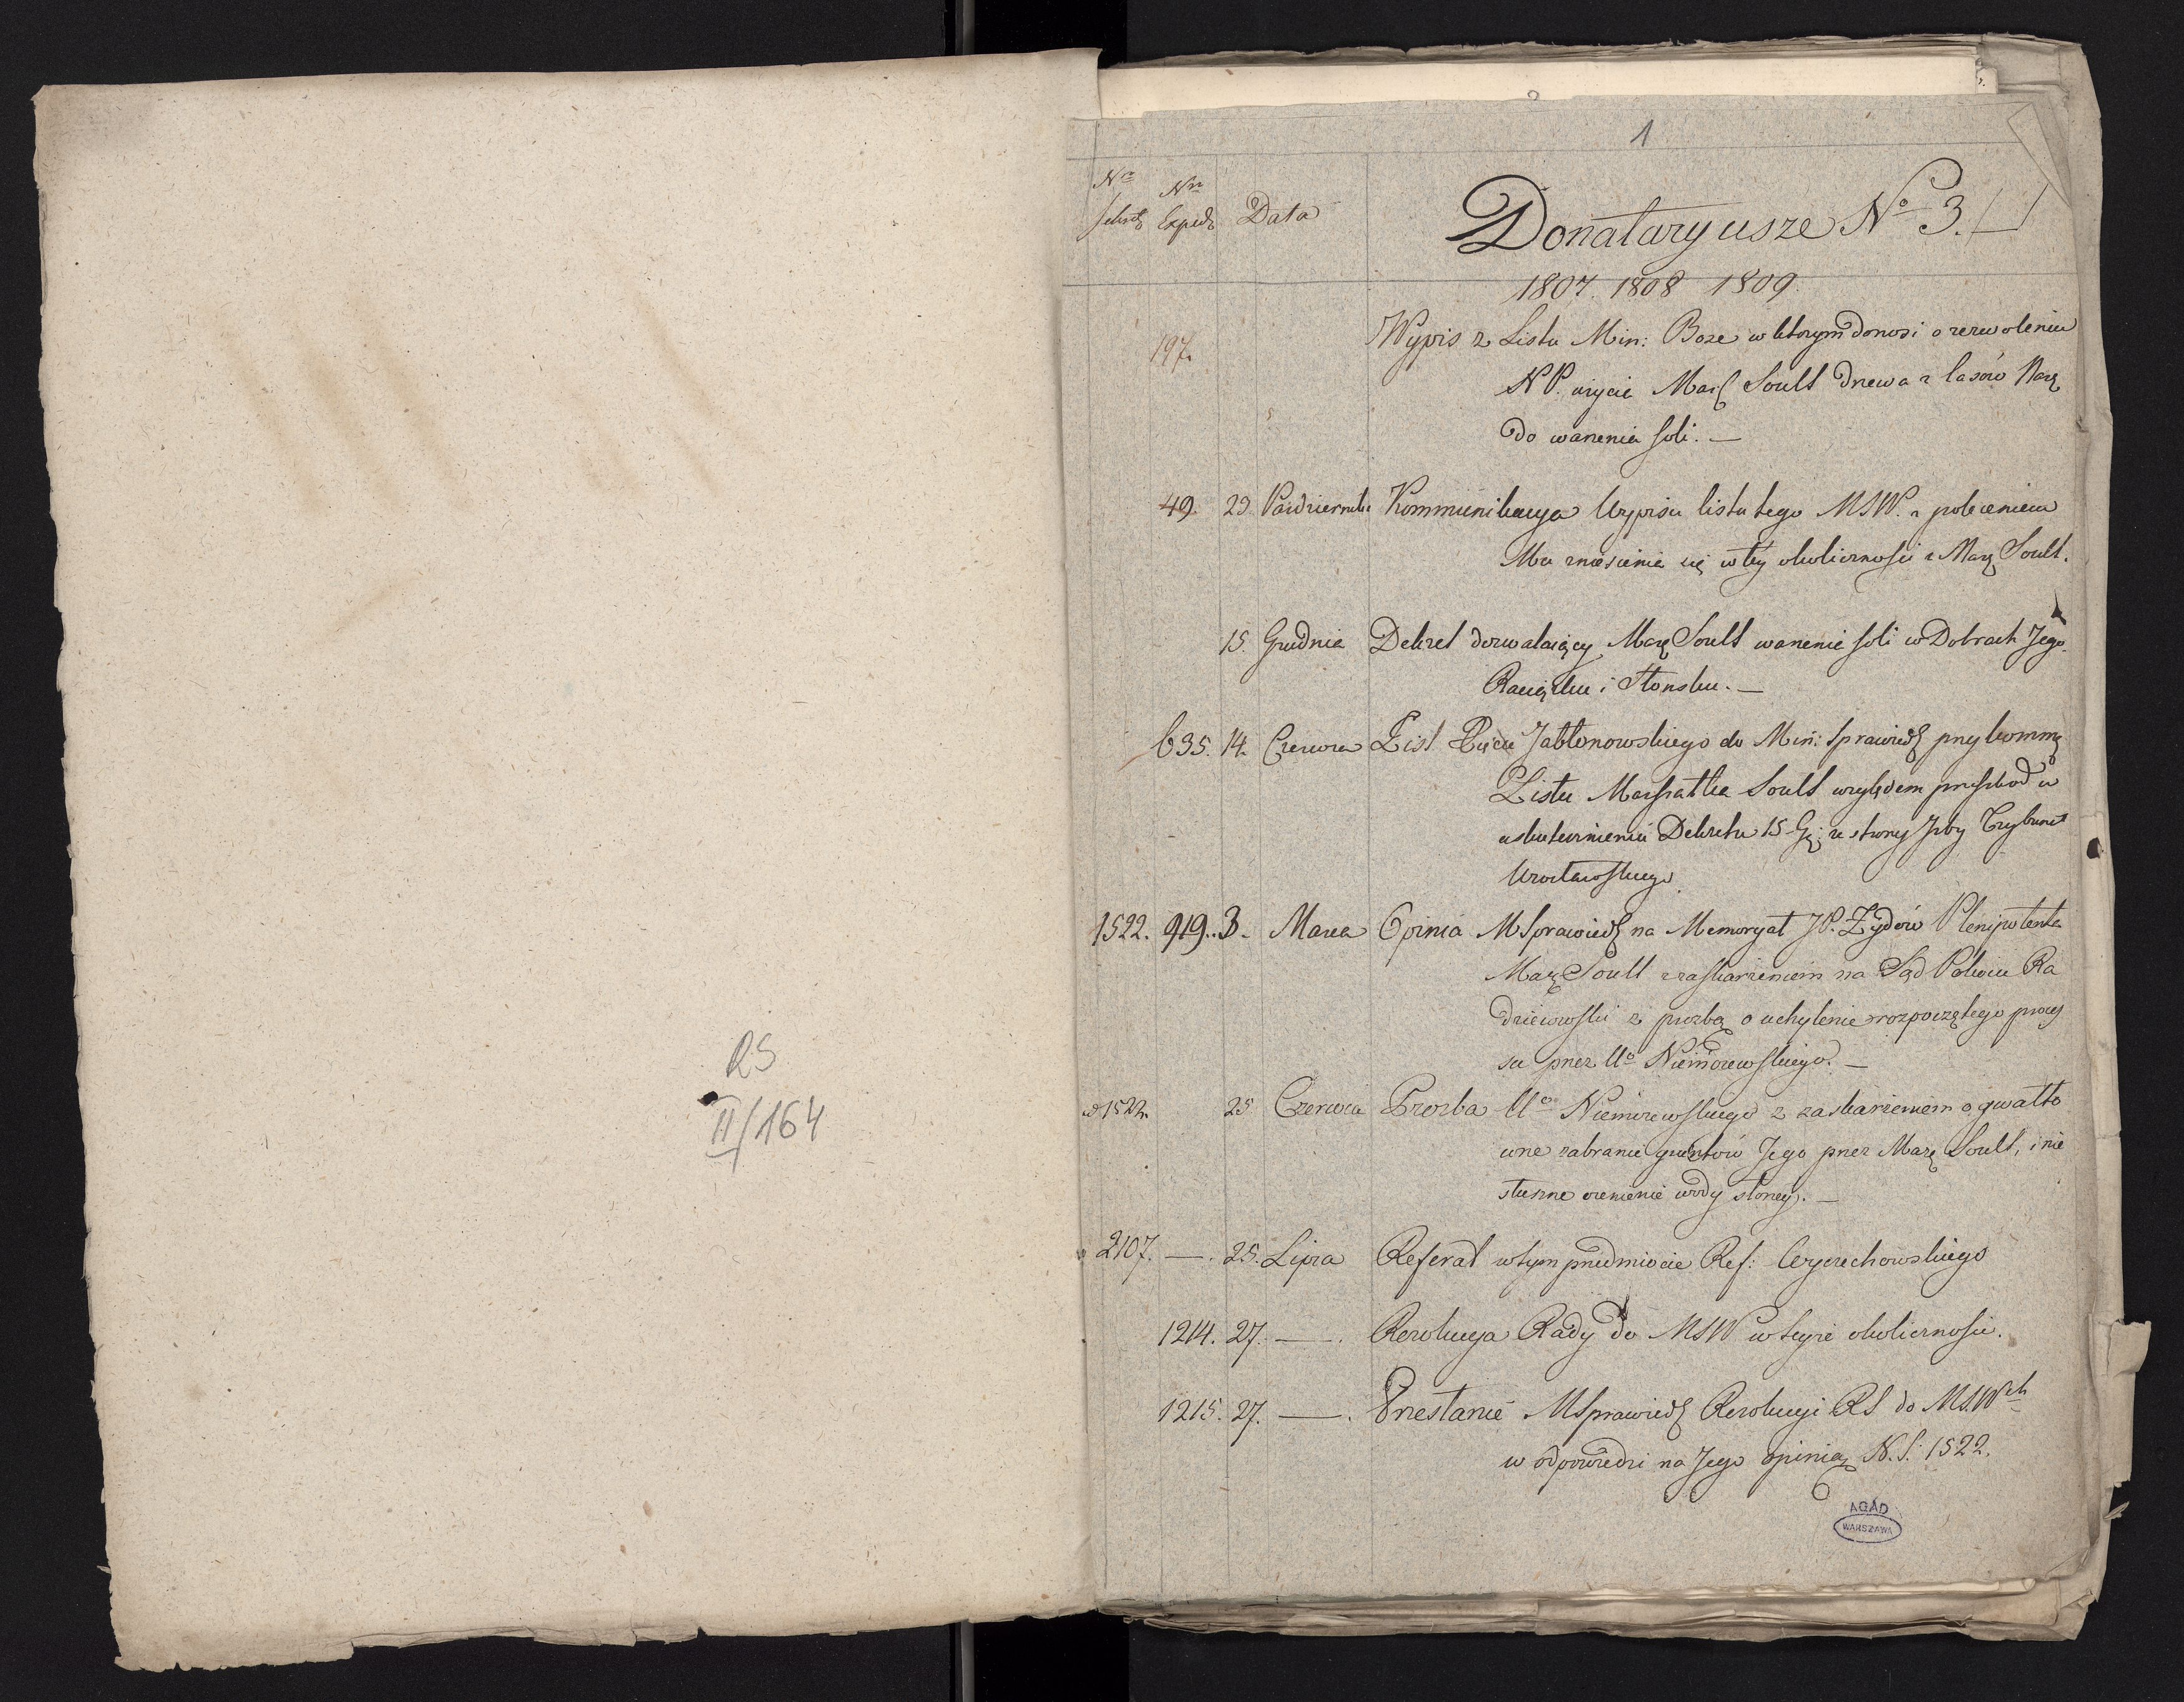 RS
II/164
1
Nro Nro
sekret: Exped: Data
Donataryusze No 3.
1807. 1808 1809.
197. Wypis z Listu Min: Boze w ktorym donosi o zezwoleniu
N P. użycia Marsz Soult drzewa z lasów Nar:
do warzenia soli. —
49. 29. Październik: Kommunikacya Wypisu listu tego MSW. z poleceniem
Mu zniesienia się w téy okoliczności z Marsz Soult.
15. Grudnia Dekret dozwalaiący Marsz Soult warzenie soli w Dobrach Jego
Raciążku i Słonsku. —
635. 14. Czerwca List Xcia Jabłonowskiego do Min: Sprawiedl przy kommu
Listu Marszałka Soult względem przeszkod w
uskutecznieniu Dekretu 15 Gr: ze strony Izby Trybunał
1522. 919. 3. Marca Opinia M Sprawiedl na Memoryał JP. Żydów Plenipotenta
Marsz Soult z zaskarżeniem na Sąd Pokoiu Ra
dziewoski z prozbą o uchylenie rozpoczętego proces
su przez Uo Niemoiewskiego. —
1522. 25 Czerwca Prozba Uo Niemoiewskiego z zaskarżeniem o gwałto
wne zabranie gruntów Jego przez Marsz Soult, i nie
słuszne ocenienie wody słoney. —
2107. — . 25. Lipca Referat w tym przedmiocie Ref: Wyczechowskiego
1214. 27. — . Rezolucya Rady do MSW w teyże okoliczności.
1215. 27. — . Przesłanie MSprawiedl Rezolucyi RS do M.S.Wch
w odpowiedzi na Jego opinią N. S. 1522.
AGAD
WARSZAWA